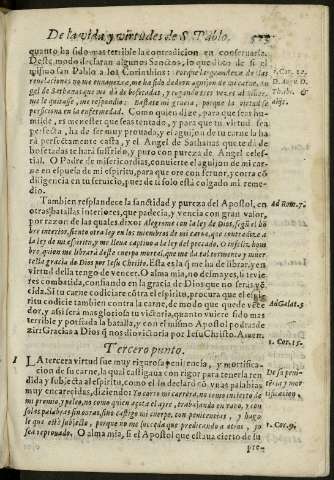 De la vida y virtudes de S. Pablo.
quanto ha sido mas terrible la contradicion en conseruarse.
Deste modo declaran algunos Sanctos, lo que dixo de si el
mismo san Pablo a los Corinthios: porque la grandeza de las
reuelaciones no me enuanezca, me ha sido dado vn aguijon de mi carne, vn
Angel de Sathanas que me dà de bofetadas, y rogando tres vezes al señor,
me le quitasse, me respondio: Bastete mi gracia, porque la virtud se
perficiona en la enfermedad. Como quien dize, para que seas hu
milde, es menester que seas tentado, y para que tu virtud sea
perfecta, ha de ser muy prouada, y el aguijon de tu carne la ha
rà perfectamente casta, y el Angel de Sathanas que te dà de
bofetadas te harà sufrido, y puro con pureza de Angel celes-
tial. O Padre de misericordias, conuierte el aguijon de mi car
ne en espuela de mi espiritu, para que ore con feruor, y corra cõ
diligencia en tu seruicio, pues de ti solo està colgado mi reme-
dio.
Tambien resplandece la sanctidad y pureza del Apostol, en
otras batallas interiores, que padecia, y vencia con gran valor,
por razon de las quales dixo: Alegrome con la ley de Dios, segũ el hõ
bre interior, siento otra ley en los miembros de mi carne, que contradize a
la ley de mi espiritu, y me lleua captiuo a la ley del peccado. O infeliz, hom
bre, quien me librarà deste cuerpo mortal, que me da tal tormento y muer
te? la gracia de Dios por Iesu Christo. Esta es la q̃ me ha de librar, y en
virtud della tengo de vencer. O alma mia, no desmayes, si te vie
res combatida, confiando en la gracia de Dios que no seràs vẽ
cida. Si tu carne codiciare cõtra el espiritu, procura que el espi
ritu codicie tambien contra la carne, de modo que quede vẽce
dor, y assi serà mas gloriosa tu victoria, quanto vuiere sido mas
terrible y porfiada la batalla, y con el mismo Apostol podràs de
zir: Gracias a Dios q̃ nos dio victoria por Iesu Christo. Amen.
Tercero punto.
1 LA tercera virtud fue muy rigurosa penitencia, y mortifica-
cion de su carne, la qual castigaua con rigor para tenerla ren
dida y subjecta al espiritu, como el lo declarò cõ vnas palabras
muy encarecidas, diziendo: Yo corro mi carrera, no como incierto de
mi premio, y peleo, no como quien açota el ayre, trabajando en vano, y con
solas palabras sin obras, sino castigo mi cuerpo con penitencias, y hago
le que estè subjecto, porque no me succeda que predicando a otros, yo
sea reprouado. O alma mia, si el Apostol que estaua cierto de su
pre-
1. Cor. 12.
D. Aug. D.
Thob. &
alijs.
Ad Rom. 7.
Ad Galat. 5
1. Cor. 15.
De su peni-
tẽcia y mor
tificacion.
1. Cor. 9.